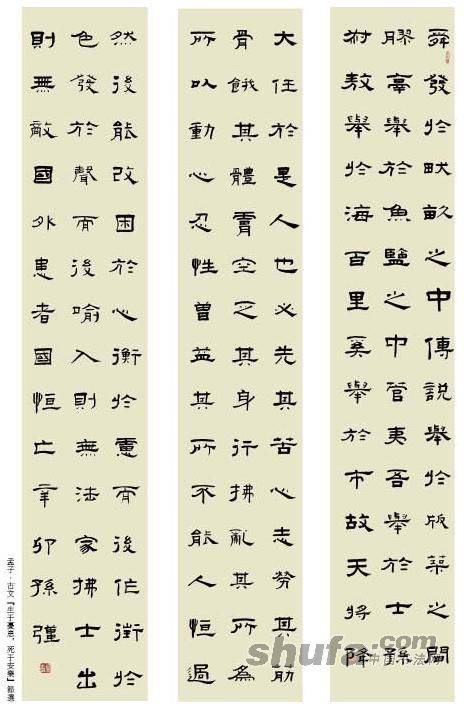 舜發於畎畝之中傳說舉於版築之閒
膠鬲舉於魚鹽之中管夷吾舉於士孫
叔敖舉於海百里奚舉於市故天將降
大任於是人也必先其苦心志勞其筋
骨餓其體膚空乏其身行拂亂其所為
所以動心忍性曾益其所不能人恒過
然後能改困於心衡於慮而後作於
色發於聲而後喻入則無法家拂士出
則無敵國外患者國恒亡辛卯孫
孟子·古文『生于憂患，死于安樂』節選
shufa.com
中国书法网